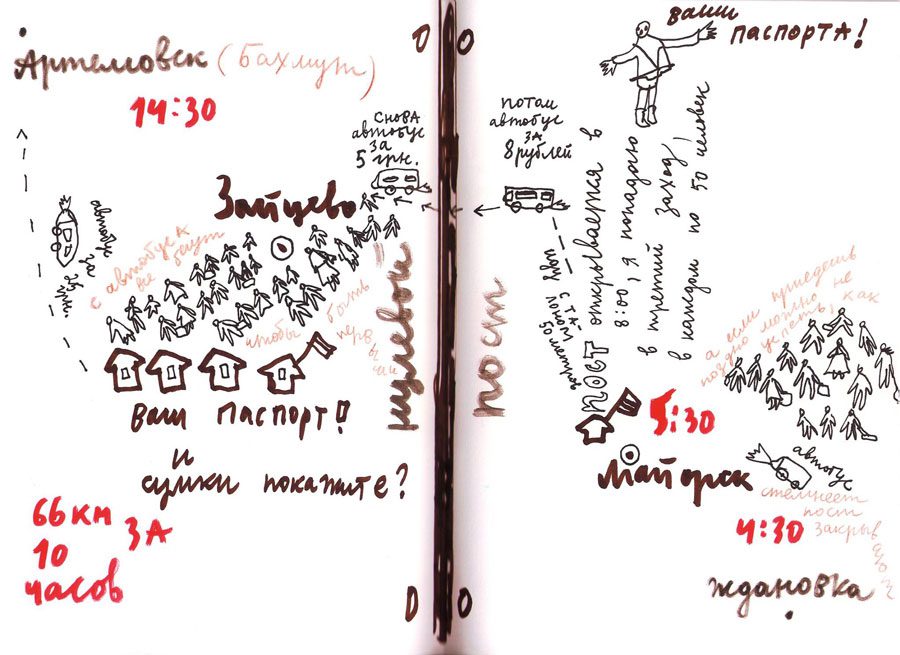 Артемовск (Бахмут)
14:30
автобус за
с автобуса
все бегут
Зайцево
чтобы быть
Ваш паспорт!
и
сумки покажите?
66 км
за
10
часов
снова
автобус
за
5 грн.
0
0
нулевой
пост
0
0
потом
автобус
за
8 рублей
ваши
паспорта!
пост открывается в
8:00, я попадаю
в третий заход,
в каждом по 50 человек
а если приедешь
поздно можно не
успеть, как
5:30
Майорск
автобус
стемнеет
пост
закрывают
4:30
Ждановка